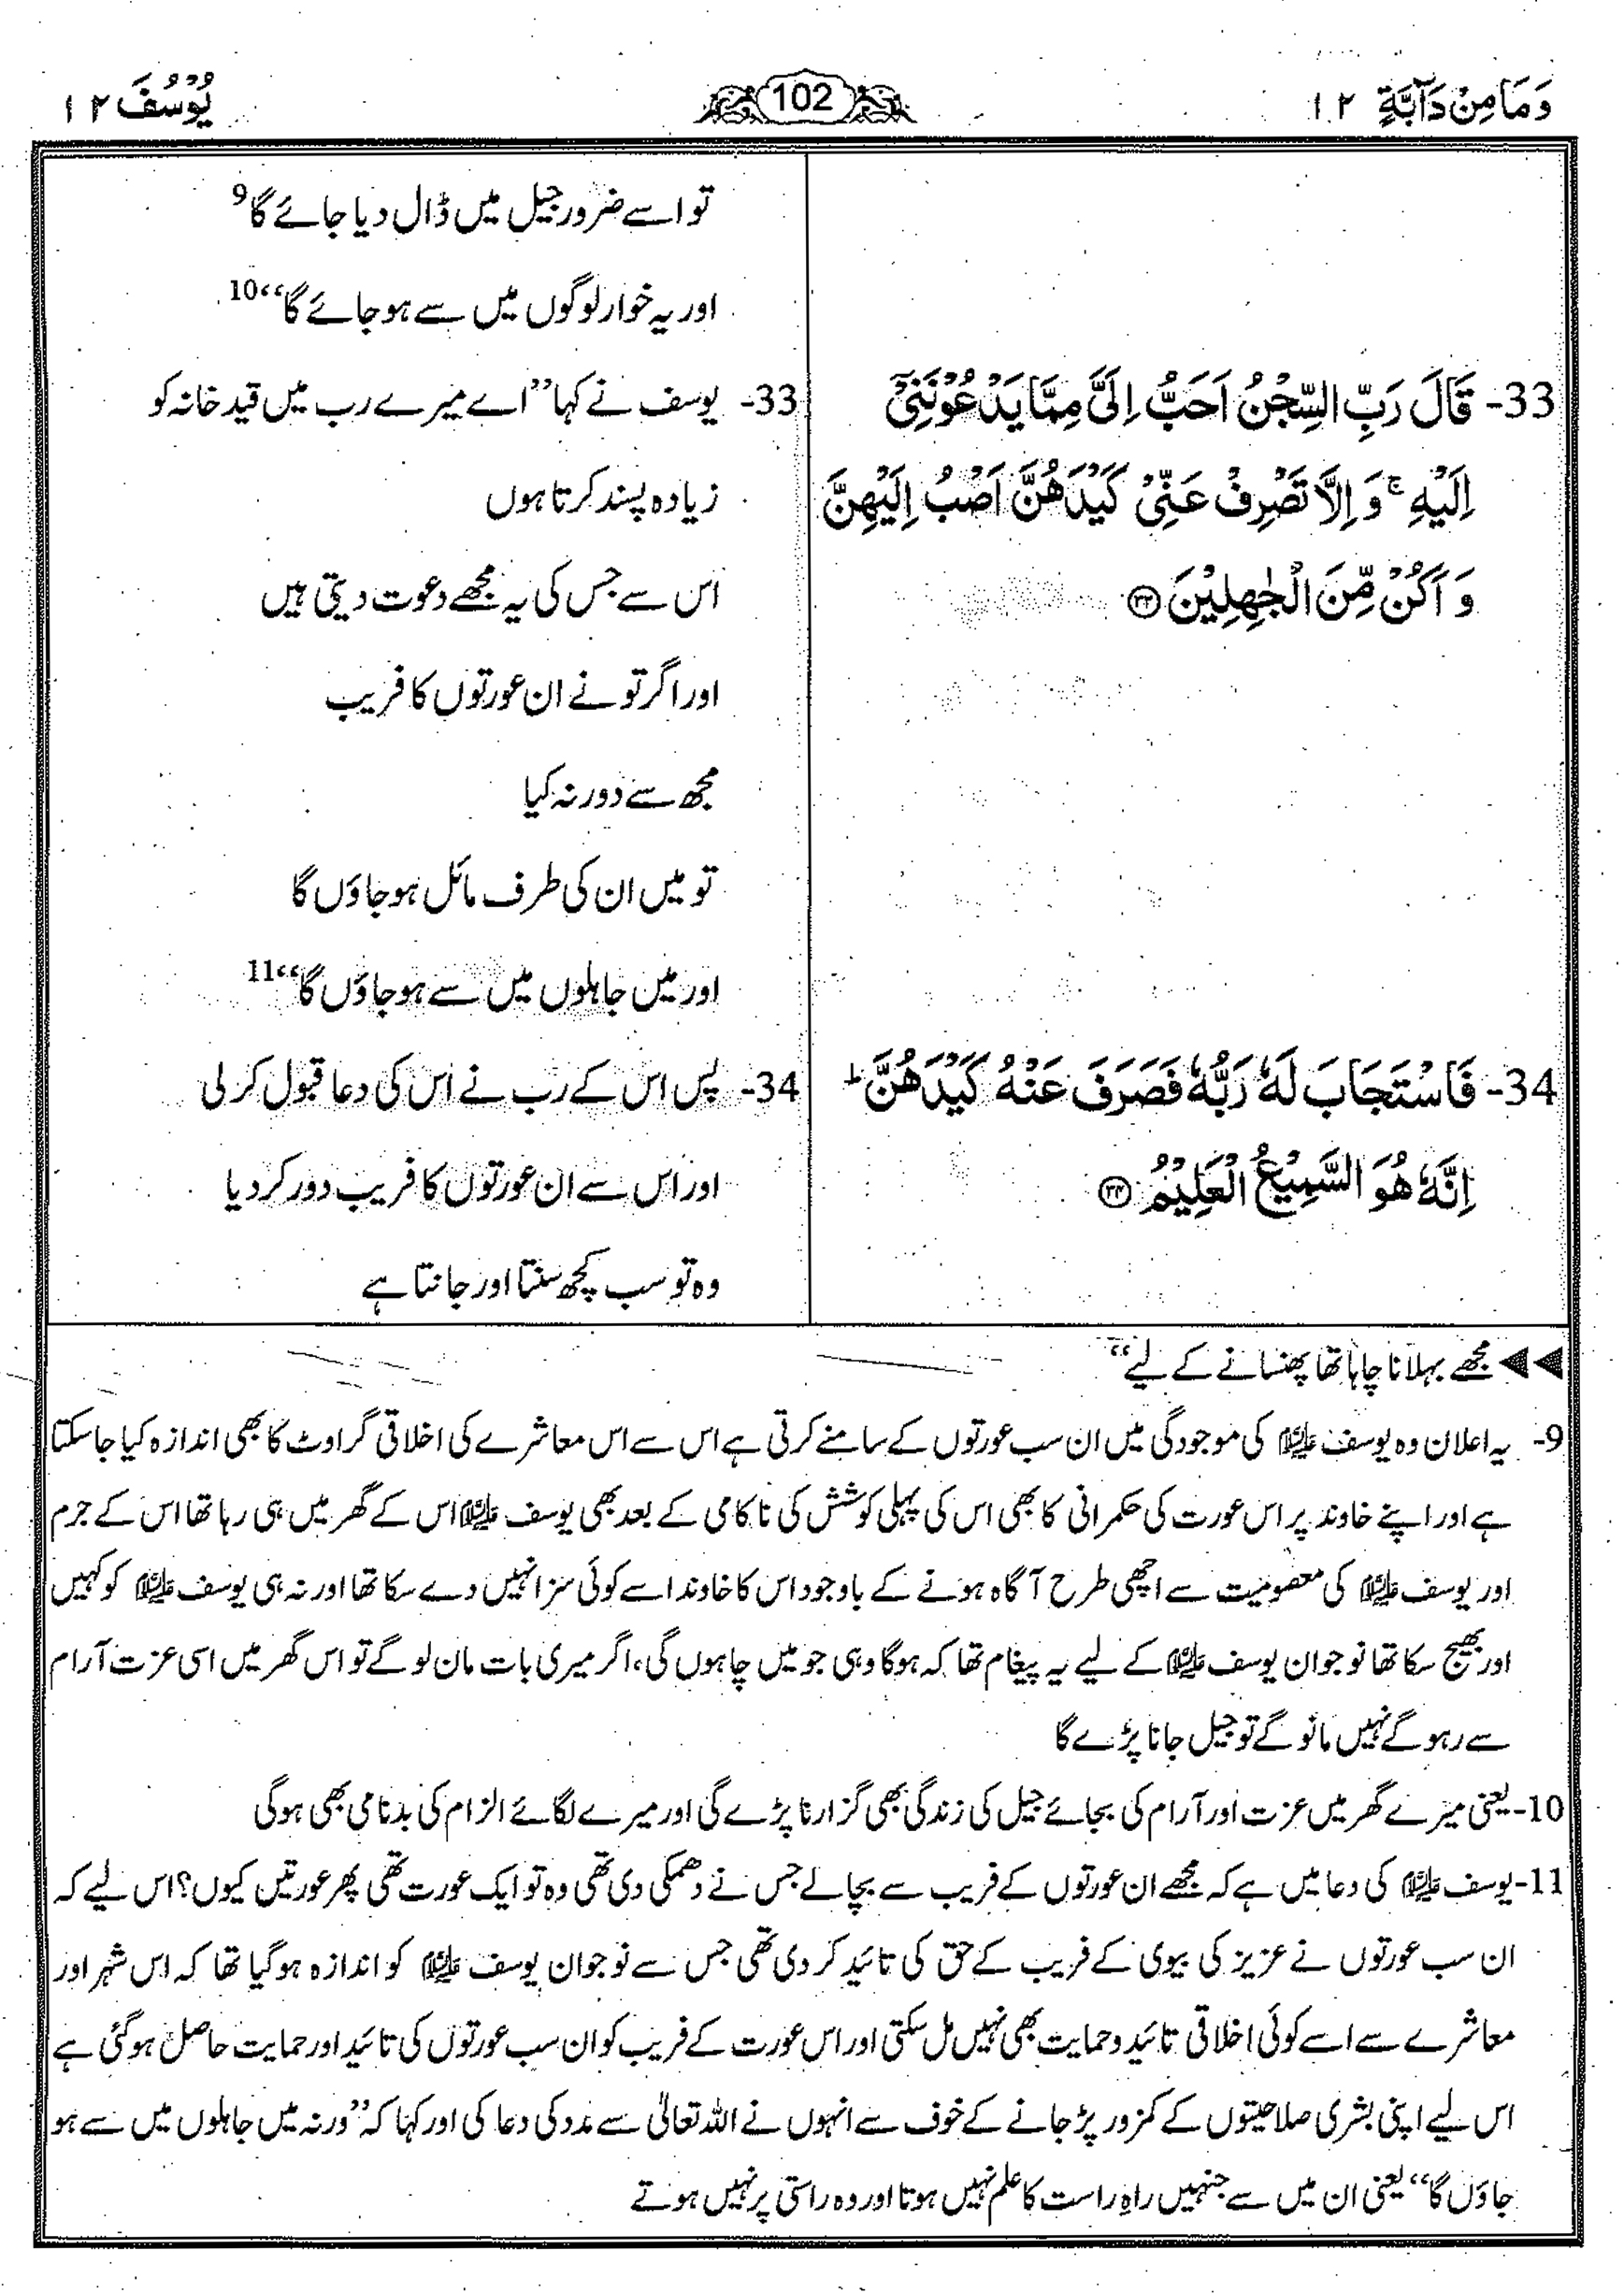 وَمَا مِنْ دَآبَّةٍ ۱۲
102
يُوْسُفَ ۱۲
تو اسے ضرور جیل میں ڈال دیا جائے گا9
اور یہ خوار لوگوں میں سے ہو جائے گا‘‘10
33- قَالَ رَبِّ السِّجْنُ اَحَبُّ اِلَیَّ مِمَّا یَدْعُوْنَنِیْۤ
اِلَیْهِ ۚ وَ اِلَّا تَصْرِفْ عَنِّیْ كَیْدَهُنَّ اَصْبُ اِلَیْهِنَّ
وَ اَكُنْ مِّنَ الْجٰهِلِیْنَ ۝۳۳
33- یوسف نے کہا ’’اے میرے رب میں قید خانہ کو
زیادہ پسند کرتا ہوں
اس سے جس کی یہ مجھے دعوت دیتی ہیں
اور اگر تو نے ان عورتوں کا فریب
مجھ سے دور نہ کیا
تو میں ان کی طرف مائل ہو جاؤں گا
اور میں جاہلوں میں سے ہو جاؤں گا‘‘11
34- فَاسْتَجَابَ لَهٗ رَبُّهٗ فَصَرَفَ عَنْهُ كَیْدَهُنَّ ؕ
اِنَّهٗ هُوَ السَّمِیْعُ الْعَلِیْمُ ۝۳۴
34- پس اس کے رب نے اس کی دعا قبول کر لی
اور اس سے ان عورتوں کا فریب دور کر دیا
وہ تو سب کچھ سنتا اور جانتا ہے
◀◀ مجھے بہلانا چاہا تھا پھنسانے کے لیے‘‘
9- یہ اعلان وہ یوسف علیہ السلام کی موجودگی میں ان سب عورتوں کے سامنے کرتی ہے اس سے اس معاشرے کی اخلاقی گراوٹ کا بھی اندازہ کیا جا سکتا
ہے اور اپنے خاوند پر اس عورت کی حکمرانی کا بھی اس کی پہلی کوشش کی ناکامی کے بعد بھی یوسف علیہ السلام اس کے گھر میں ہی رہا تھا اس کے جرم
اور یوسف علیہ السلام کی معصومیت سے اچھی طرح آگاہ ہونے کے باوجود اس کا خاوند اسے کوئی سزا نہیں دے سکا تھا اور نہ ہی یوسف علیہ السلام کو کہیں
اور بھیج سکا تھا نوجوان یوسف علیہ السلام کے لیے یہ پیغام تھا کہ ہوگا وہی جو میں چاہوں گی، اگر میری بات مان لو گے تو اس گھر میں اسی عزت آرام
سے رہو گے نہیں مانو گے تو جیل جانا پڑے گا
10- یعنی میرے گھر میں عزت اور آرام کی بجائے جیل کی زندگی بھی گزارنا پڑے گی اور میرے لگائے الزام کی بدنامی بھی ہوگی
11- یوسف علیہ السلام کی دعا میں ہے کہ مجھے ان عورتوں کے فریب سے بچالے جس نے دھمکی دی تھی وہ تو ایک عورت تھی پھر عورتیں کیوں؟ اس لیے کہ
ان سب عورتوں نے عزیز کی بیوی کے فریب کے حق کی تائید کر دی تھی جس سے نوجوان یوسف علیہ السلام کو اندازہ ہو گیا تھا کہ اس شہر اور
معاشرے سے اسے کوئی اخلاقی تائید و حمایت بھی نہیں مل سکتی اور اس عورت کے فریب کو ان سب عورتوں کی تائید اور حمایت حاصل ہو گئی ہے
اس لیے اپنی بشری صلاحیتوں کے کمزور پڑ جانے کے خوف سے انہوں نے اللہ تعالیٰ سے مدد کی دعا کی اور کہا کہ ’’ورنہ میں جاہلوں میں سے ہو
جاؤں گا‘‘ یعنی ان میں سے جنہیں راہِ راست کا علم نہیں ہوتا اور وہ راستی پر نہیں ہوتے